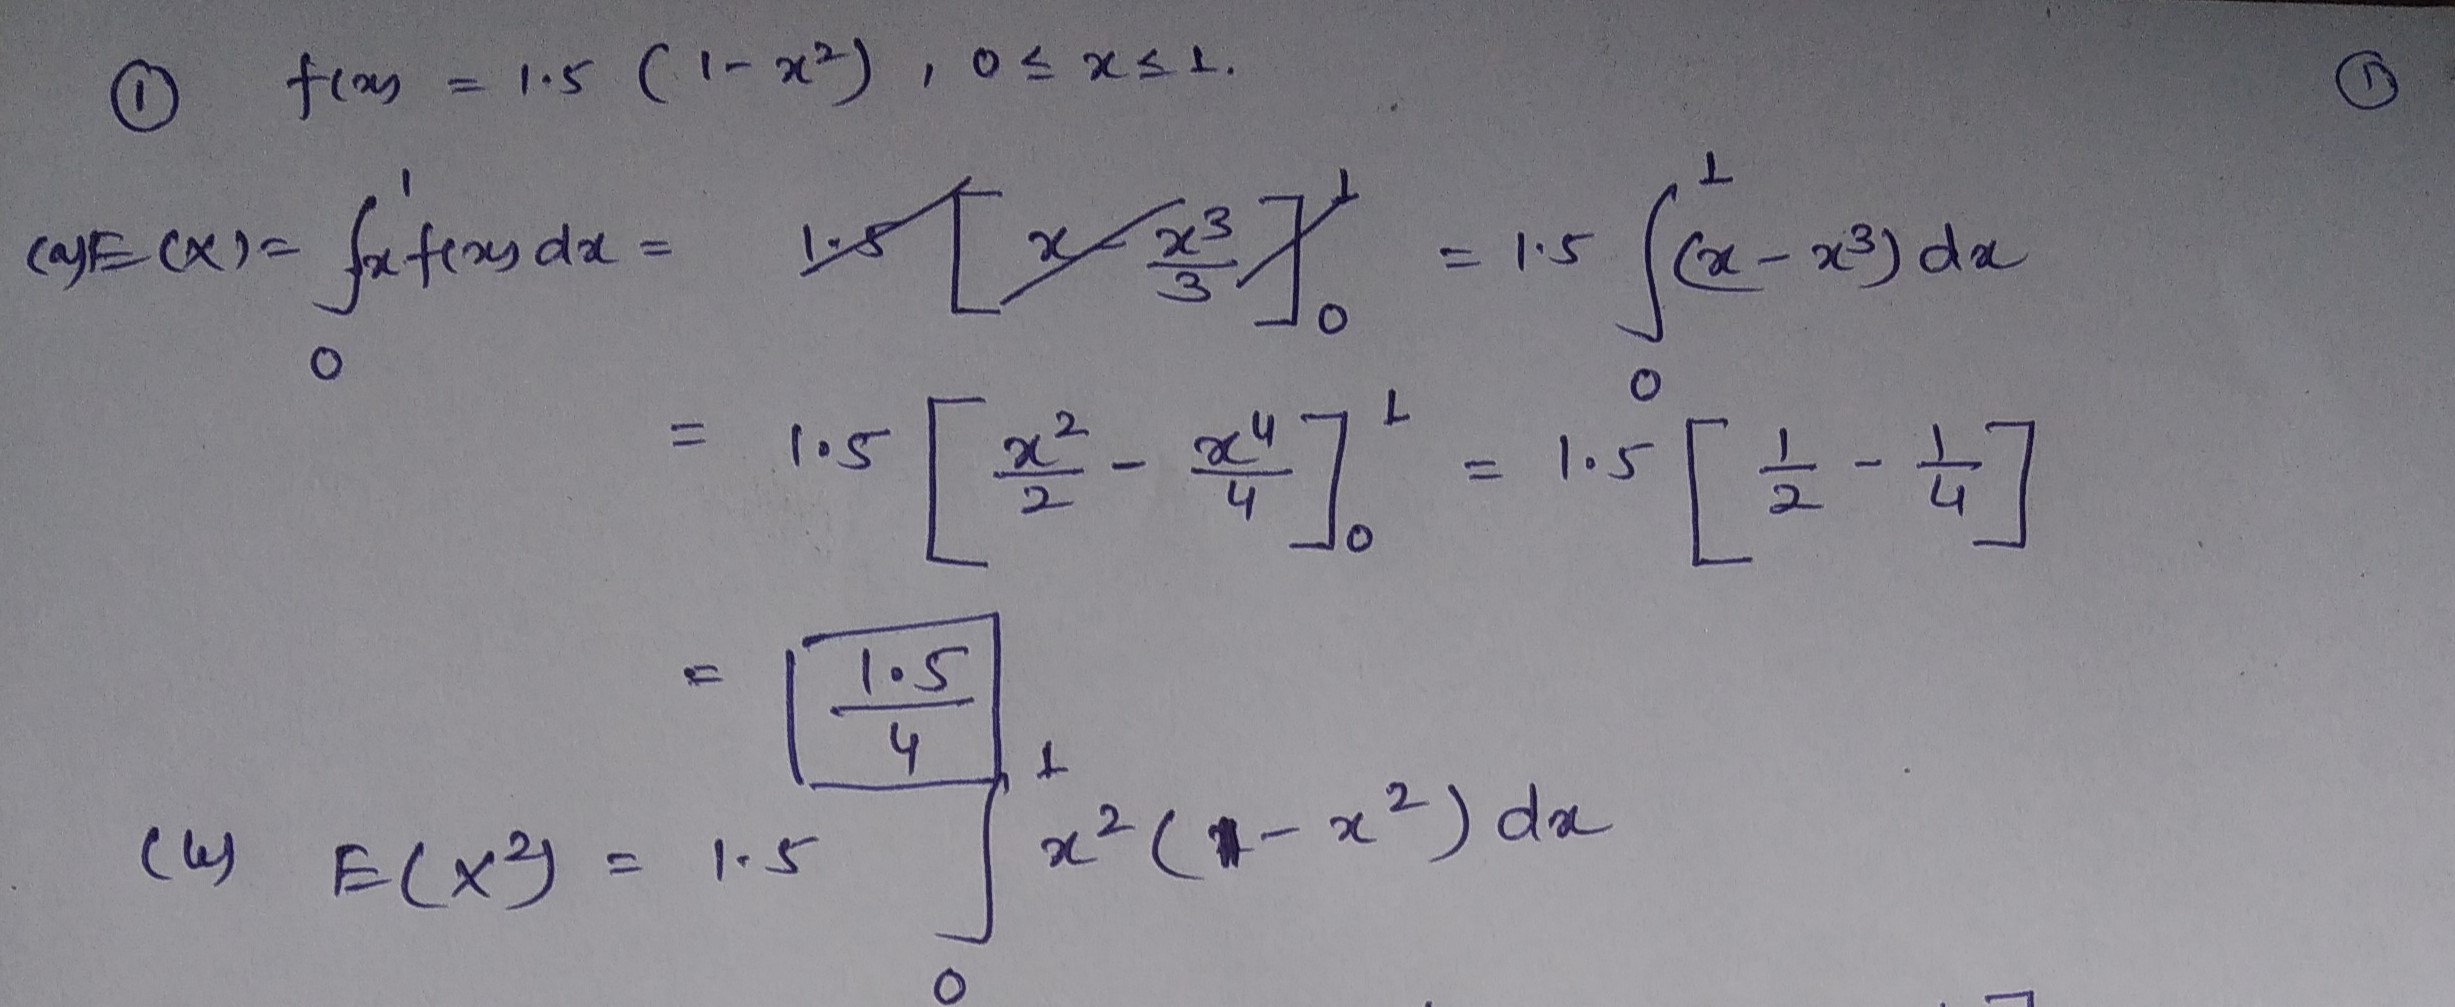 ① f(x) = 1.5 (1-x²), 0 ≤ x ≤ 1. ①
(a) E(X) = ∫₀¹ x f(x) dx = 1.5 [x - x³/3]₀¹ = 1.5 ∫₀¹ (x - x³) dx
= 1.5 [x²/2 - x⁴/4]₀¹ = 1.5 [1/2 - 1/4]
= 1.5/4
(b) E(X²) = 1.5 ∫₀¹ x² (1 - x²) dx